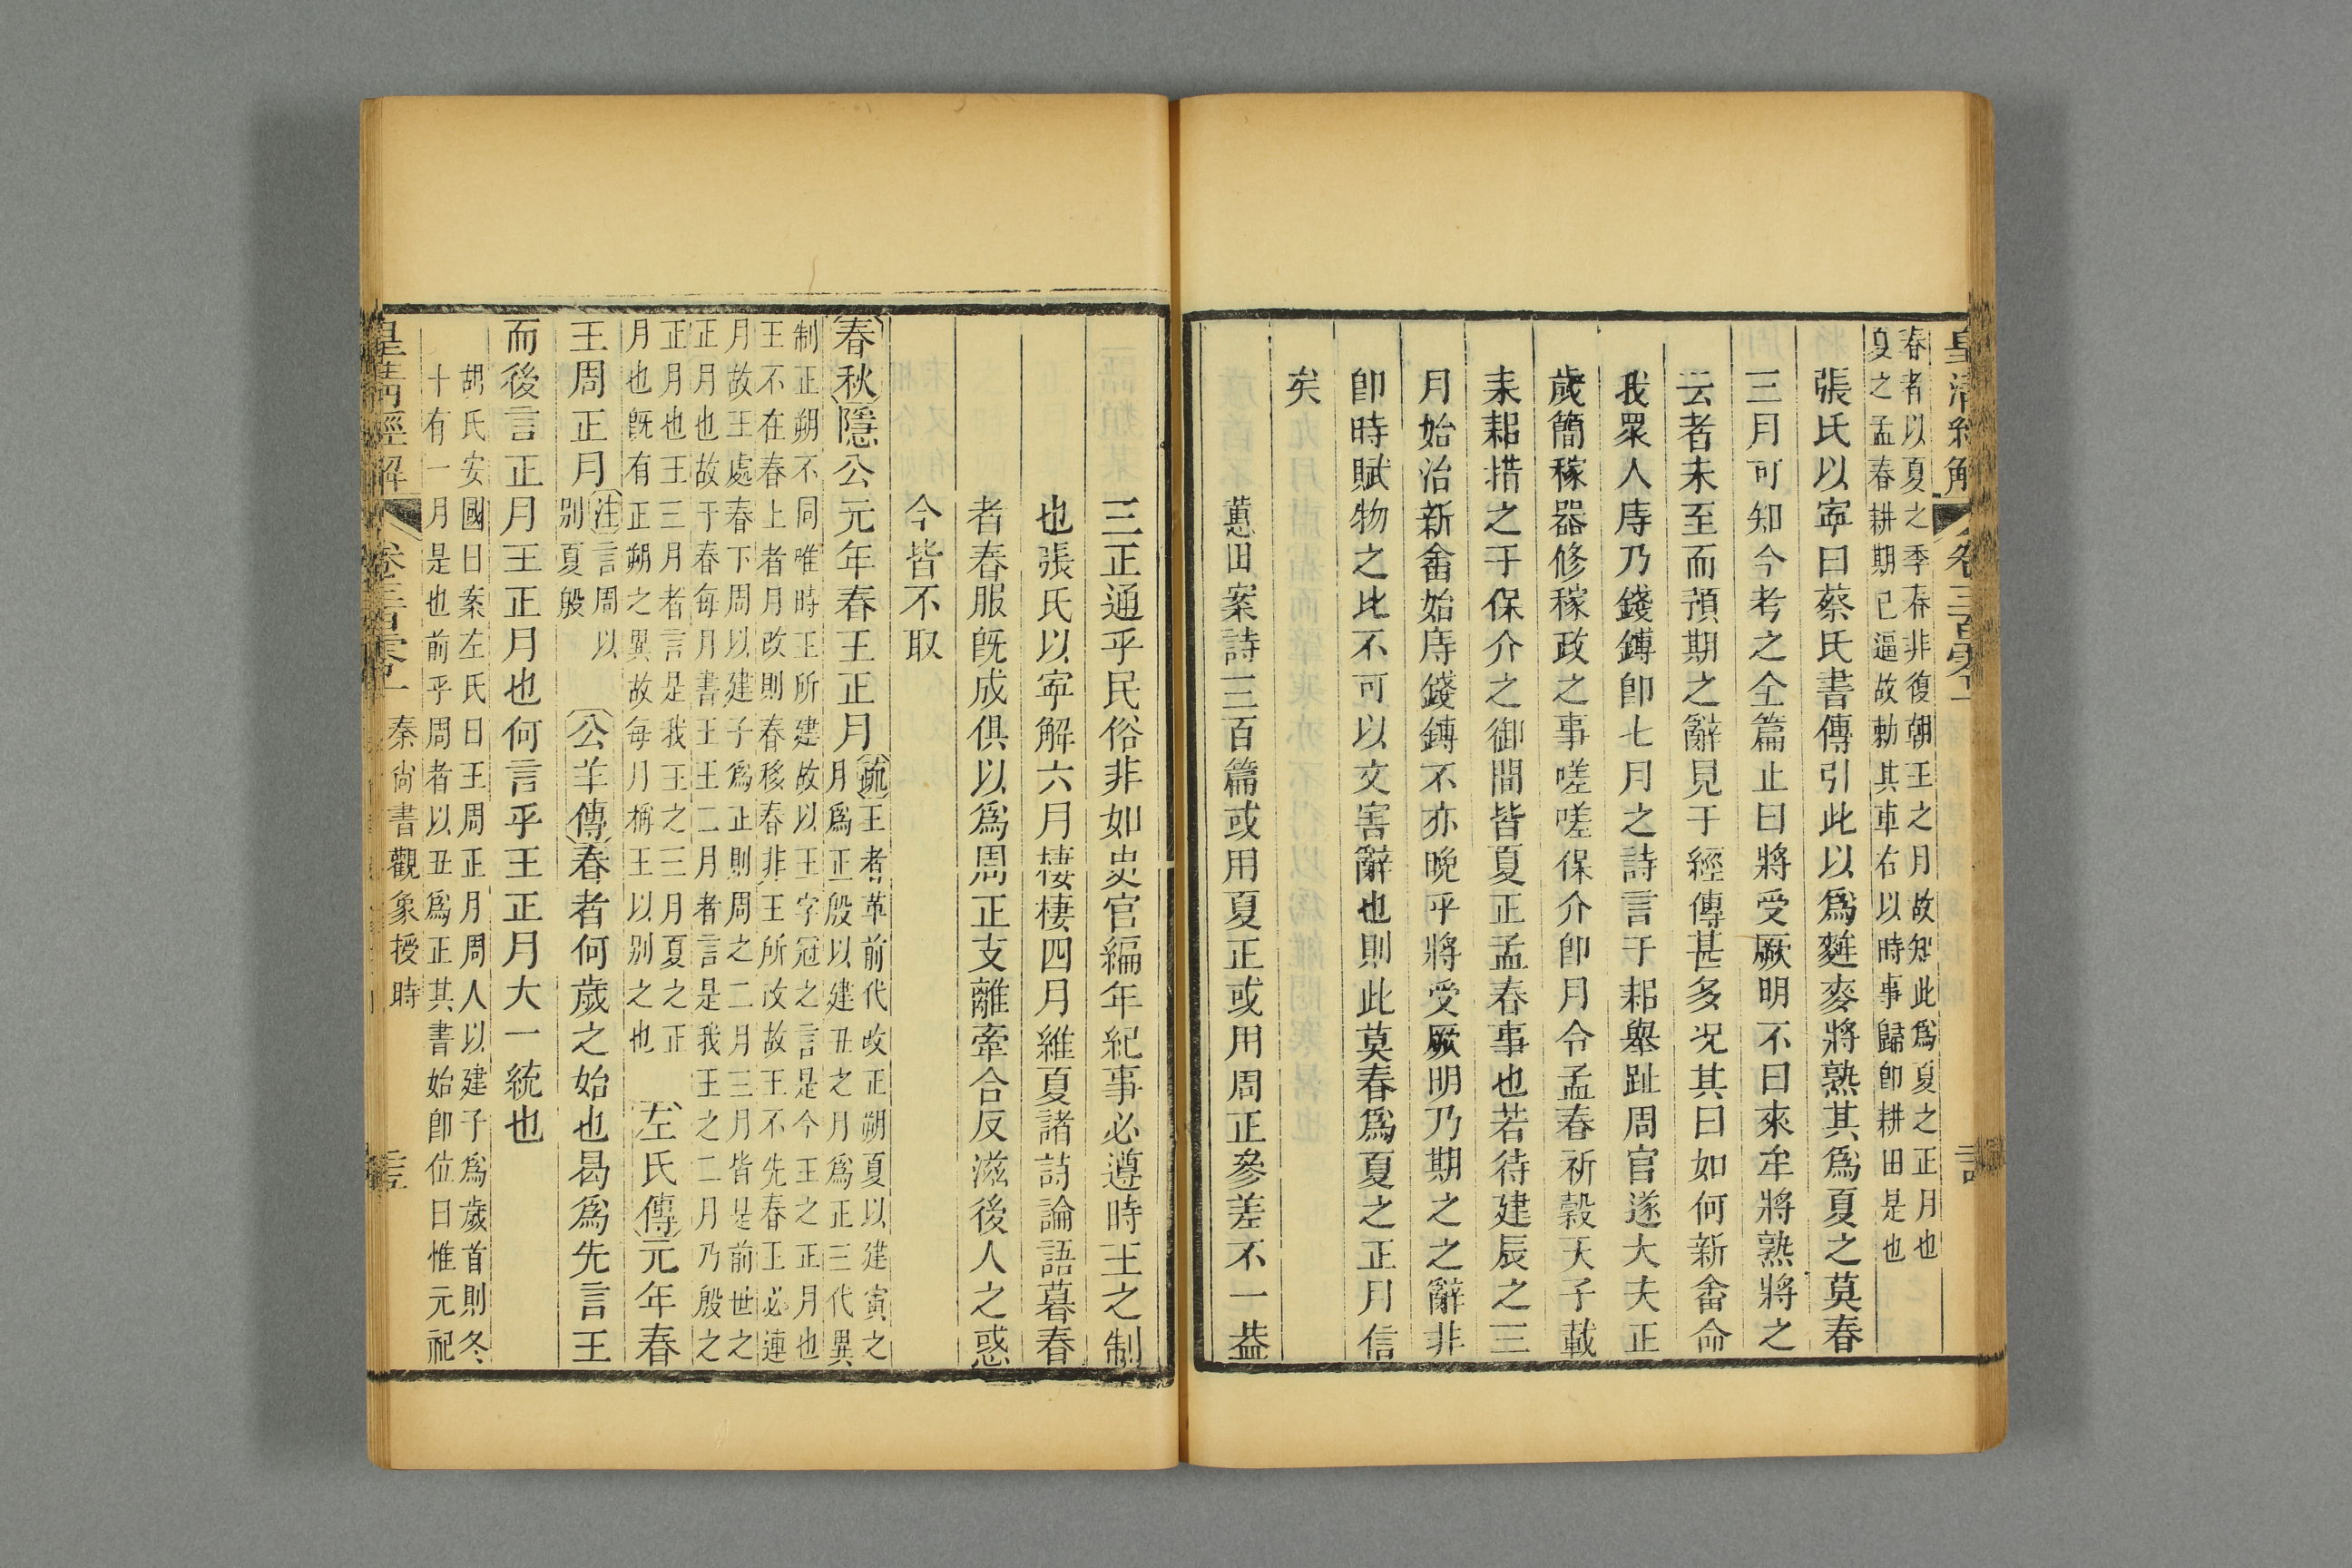 皇清經解
卷三百零一
春者以夏之季春非復朝王之月故知此爲夏之正月也
夏之孟春耕期已逼故勅其車右以時事歸卽耕田是也
張氏以寧曰蔡氏書傳引此以爲麰麥將熟其爲夏之莫春
三月可知今考之全篇止曰將受厥明不曰來牟將熟將之
云者未至而預期之辭見于經傳甚多况其曰如何新畬命
我衆人庤乃錢鎛卽七月之詩言于耜舉趾周官遂大夫正
歲簡稼器修稼政之事嗟嗟保介卽月令孟春祈穀天子載
耒耜措之于保介之御間皆夏正孟春事也若待建辰之三
月始治新畬始庤錢鎛不亦晚乎將受厥明乃期之之辭非
卽時賦物之比不可以文害辭也則此莫春爲夏之正月信
矣
蕙田案詩三百篇或用夏正或用周正參差不一葢
三正通乎民俗非如史官編年紀事必遵時王之制
也張氏以寧解六月棲棲四月維夏諸詩論語暮春
者春服旣成俱以爲周正支離牽合反滋後人之惑
今皆不取
春秋隱公元年春王正月
疏王者革前代改正朔夏以建寅之
月爲正殷以建丑之月爲正三代異
制正朔不同唯時王所建故以王字冠之言是今王之正月也
王不在春上者月改則春移春非王所改故王不先春王必連
月故王處春下周以建子爲正則周之二月三月皆是前世之
正月也故于春每月書王王二月者言是我王之二月乃殷之
正月也王三月者言是我王之三月夏之正
月也旣有正朔之異故每月稱王以别之也
左氏傳元年春
王周正月
注言周以
别夏殷
公羊傳春者何歲之始也曷爲先言王
而後言正月王正月也何言乎王正月大一統也
胡氏安國曰案左氏曰王周正月周人以建子爲歲首則冬
十有一月是也前乎周者以丑爲正其書始卽位曰惟元祀
皇清經解
卷三百零一
秦尚書觀象授時